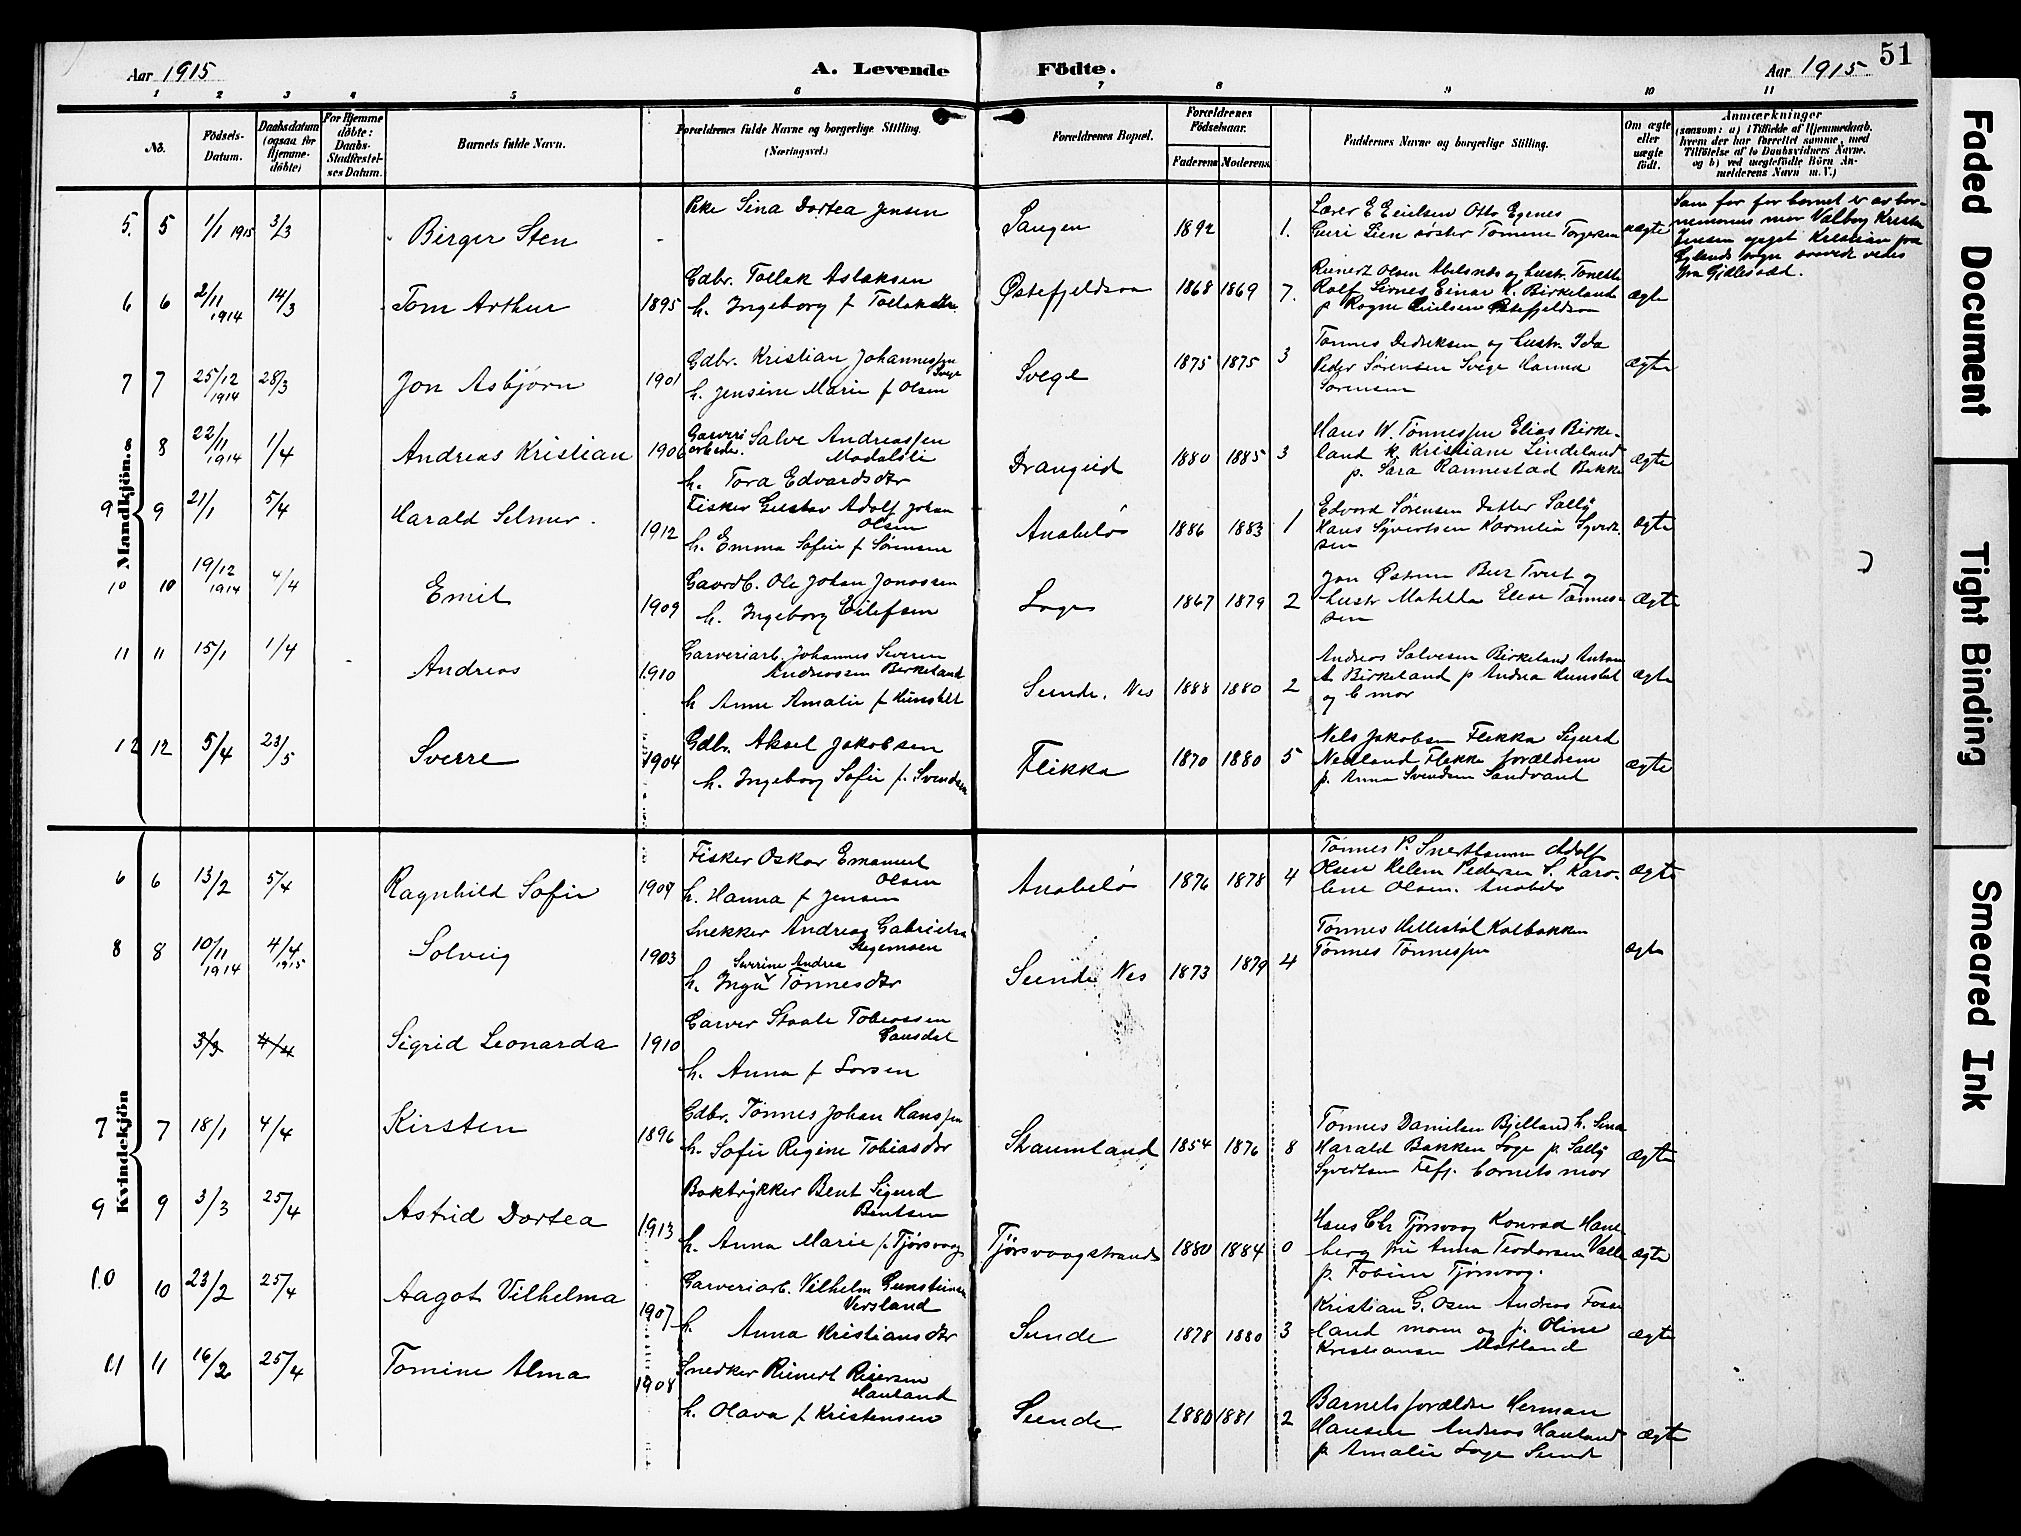 Aar 1915
A. Levende Födte.
Aar 1915
51
1 2 3 4 5 6 7 8 9 10 11
No.
Födsels-Datum.
Daabsdatum (ogsaa for Hjemme-döbte)
For Hjemme döbte: Daabs-Stadfestel-ses Datum.
Barnets fulde Navn.
Forældrenes fulde Navne og borgerlige Stilling. (Næringsvei.)
Forældrenes Bopæl.
Forældrenes Födselsaar.
Faderens Moderens
Faddernes Navne og borgerlige Stilling.
Om ægte eller uægte födt.
Anmærkninger
(saasom: a) i Tilfælde af Hjemmedaab, hvem der har forrettet samme, med Tilföielse af to Daabsvidners Navne, og b) ved uægtefödte Börn An-melderens Navn m. V.)
Mandkjön.
5. 5 1/1 1915 3/3 Birger Sten
Pike Sina Dortea Jensen
Sangen 1892 1.
Lærer E Eielsen Otto Egenes
Guri Lien søster Tomine Torgersen
uægte
Som far for barnet er av bar-
nemorens mor Valborg
Jensen opgit Kristian fra
6 6 2/11 1914 14/3 Tom Arthur 1895
Gdbr. Tollak Aslaksen
h. Ingeborg f Tollaksen
Østefjeldson 1868 1869 7.
Reinert Olsen Abelsnes og hustr. Tonette
Rolf Sirnes Einar K. Birkeland
ægte
7 7 25/12 1914 28/3 Jon Asbjørn 1901
Gdbr. Kristian Johannessen
Svege
h. Jensine Marie f Olsen
Svege 1875 1875 3
Tønnes Dedreksen og hustr. Ida
Peder Sørensen Svege Hanna
Sørensen
ægte
8 8 22/11 1914 1/4 Andreas Kristian 1906
Garveri arbeder. Salve Andreassen
Modalsli
h. Tora Edvardsdtr
Drangeid 1880 1885 3
Hans W. Tønnessen Elias Birke-
land k. Kristiane Lindeland
p. Sara Rannestad Bakke
ægte
9 9 21/1 5/4 Harald Selmer. 1912
Fisker Gustav Adolf Johan
Olsen
h. Emma Sofie f Sørensen
Anabeló 1886 1883 1
Edvord Sørensen Datter Sally
Hans Syvertsen Kornelia Syvert-
sen
ægte
10 10 19/12 1914 4/4 Emil 1909
Gaardb. Ole Johan Jonassen
h. Ingeborg Eilefsen
Loge 1867 1879 2
Jon Østen Ber Tveit og
hustr Matilda Elise Tønnes-
sen
ægte
11 11 15/1 1/4 Andreas 1910
Garveriarb. Johannes Severin
Andreassen Birkeland
h Anne Amalie f Kunstel
Sunde, Nes 1888 1880 2
Andreas Salvesen Birkeland Anton
A Birkeland p Andrea Kunstel
og b mor
ægte
12 12 5/4 23/5 Sverre 1904
Gdbr. Aksel Jakobsen
h. Ingeborg Sofie f. Svendsen
Flikka 1870 1880 5
Nels Jakobsen Flikka Sigurd
Nedland Flikka forældrene
p. Anna Svendsen Sandvand
ægte
Kvindekjön
6 6 13/2 5/4 Ragnhild Sofie 1907
Fisker Oskar Emanuel
Olsen
h. Hanna f Jensen
Anabeló 1876 1878 4
Tønnes P. Adolf
Olsen Helene Pedersen S. Karo-
line Olsen. Anabelø
ægte
8 8 10/11 1914 4/4 1915 Solveig 1903
Snekker Andreas Gabrielsen
Stegemoen
Severine Andrea
h. Inga Tønnesdtr
Sunde Nes 1873 1879 4
Tønnes Hellestøl Kolbakken
Tønnes Tønnessen
ægte
3/3 4/4 Sigrid Leonarda 1910
Garver Staale Tobiassen
Gausdal
h. Anna f Larsen
7 7 18/1 4/4 Kirsten 1896
Gdbr. Tønnes Johan Hanssen
h. Sofie Regine Tobiasdtr
Straumland 1854 1876 8
Tønnes Danielsen Bjelland h. Sina
Harald Bakken Loge p. Sally
Syvertsen Fefj. barnets mor
ægte
9 9 3/3 25/4 Astrid Dortea 1913
Boktrykker Bent Sigurd
Bentsen
h. Anna Marie f. Tjørsvaag
Tjørsvaagstrand 1880 1884 0
Hans Chr Tjørsvaag Konrad Hane
berg fru Anna Teodorsen Valle
p. Tobine Tjørsvaag.
ægte
10 10 23/2 25/4 Aagot Vilhelma 1907
Garveriarb. Vilhelm Gunsteinsen
Versland
h. Anna Kristiansdtr
Sunde 1878 1880 3
Kristian G. Osen Andreas Fosse
land moren og p. Oline
Kristiansen Motland
ægte
11 11 16/2 25/4 Tomine Alma 1908
Snedker Reinert Reiersen
Hauland
h. Olava f Kristensen
Sunde 1880 1881 2
Barnets forældre Herman
Hansen Andreas Hauland
p. Amalie Loge Sunde
ægte
Faded Document
Tight Binding
Smeared Ink